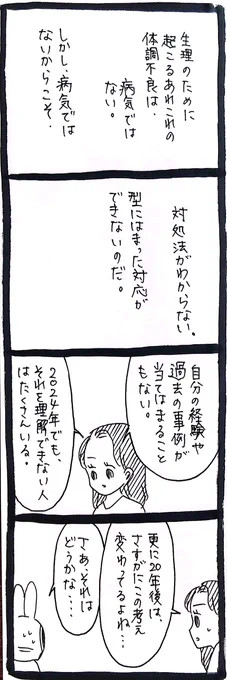 生理のために
起こるあれこれの
体調不良は、
病気では
ない。
しかし、病気では
ないからこそ、
対処法がわからない。
型にはまった対応が
できないのだ。
自分の経験や
過去の事例が
当てはまること
もない。
2024年でも、
それを理解できない人
はたくさんいる。
更に20年後は、
さすがにこの考え
変わってるよね…
さあ、それは
どうかな…